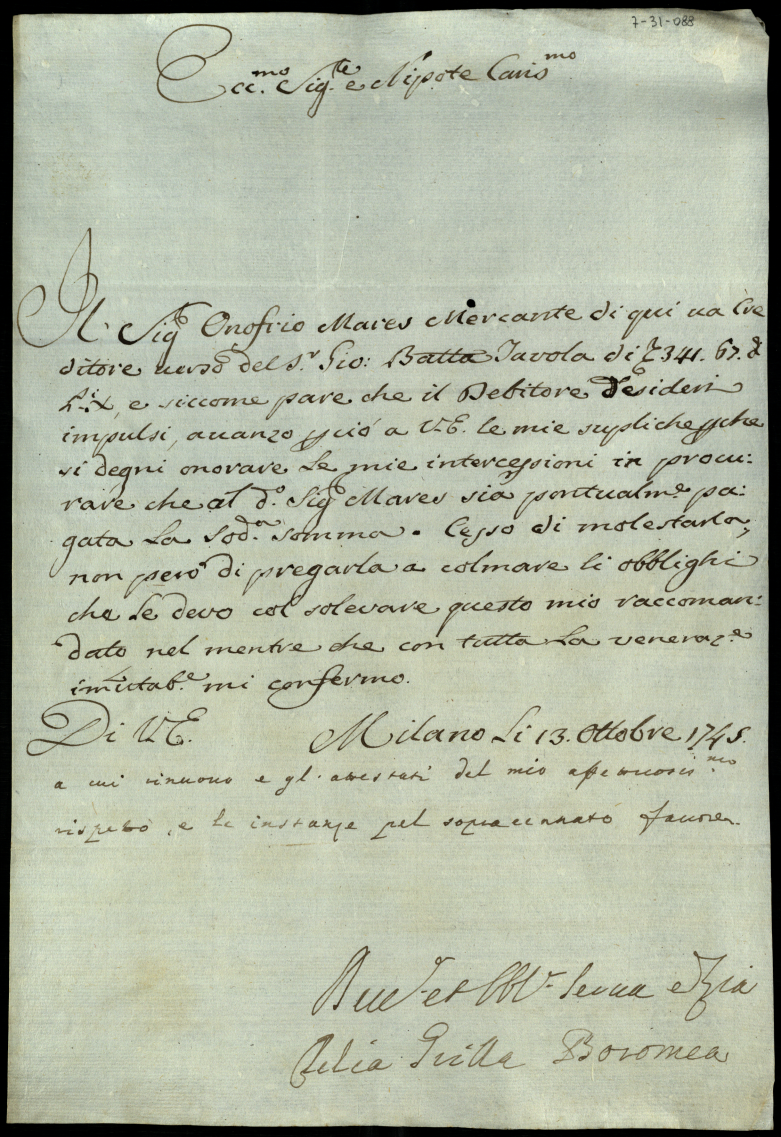 7-31-088
Ecc.mo Sig.re e Nipote Caris.mo
Il Sig.r Onofrio Mares Mercante di qui va Cre
ditore verso del S.r Gio: Batta Tavola di 341. 67. d
e siccome pare che il Debitore desideri
impulsi, avanzo perciò a V.E. le mie supliche perche
si degni onorare le mie intercessioni in procu:
rare che al d.o Sig.r Mares sia pontualm.e pa:
gata la sod.a somma. Cesso di molestarla,
non però di pregarla a colmare li obblighi
che le devo col solevare questo mio raccoman:
dato nel mentre che con tutta la veneraz.e
imutab.e mi confermo.
Di V.E. Milano li 13. Ottobre 1745.
a cui rinuovo e gl'attestati del mio affettuosis.mo
rispetto, e le instanze pel sopraccennato favore.
Dev.a et Obbl.a Serva e Zia
Clelia Grilla Boromea